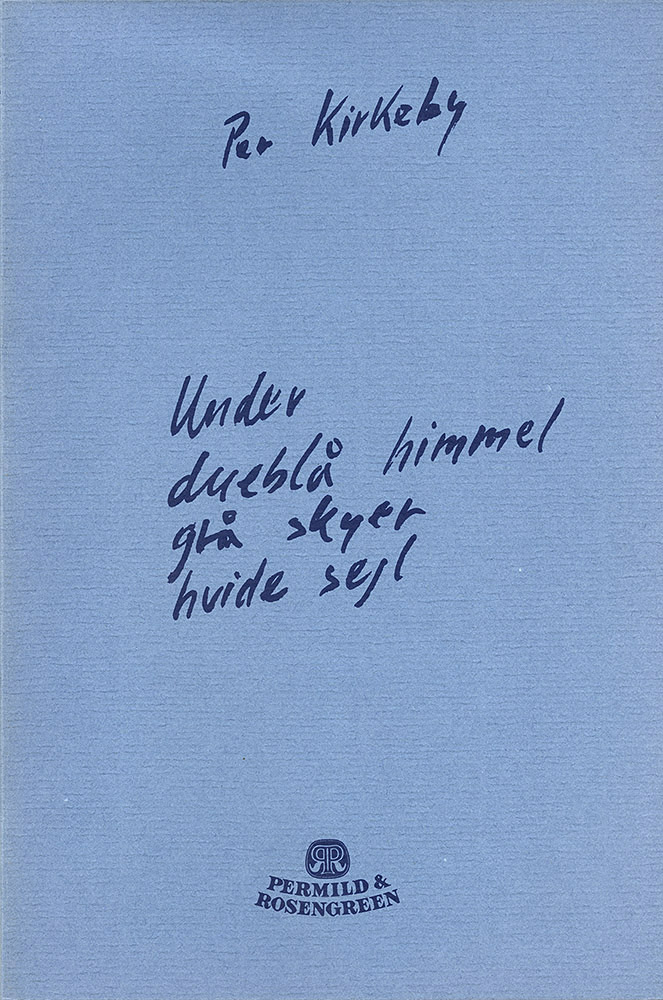 Per Kirkeby
Under
dueblå himmel
grå skyer
hvide sejl
RR
PERMILD &
ROSENGREEN